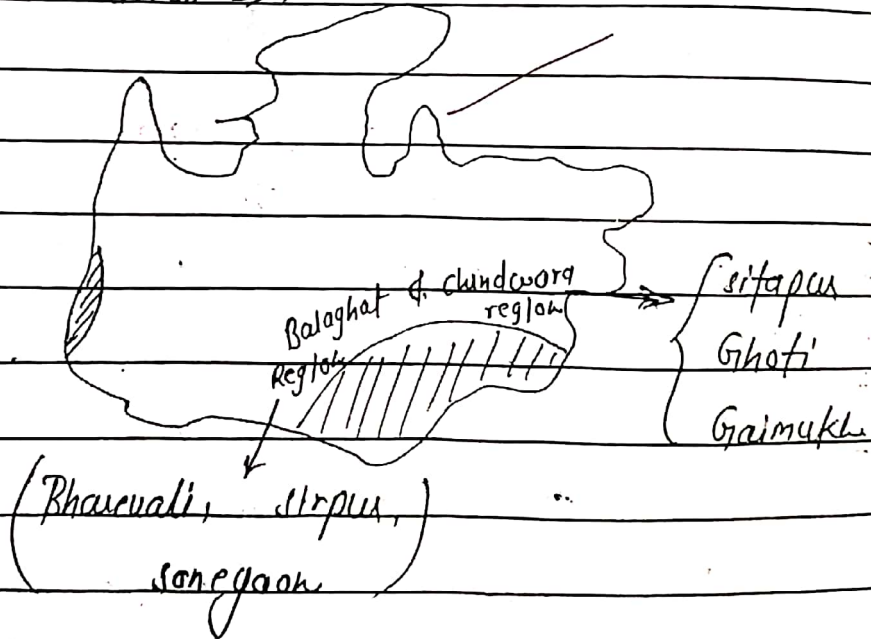 Balaghat & chindwora
region
Region
sitapur
Ghoti
Gaimukh
(Bharweli, sirpur,
sonegaon)